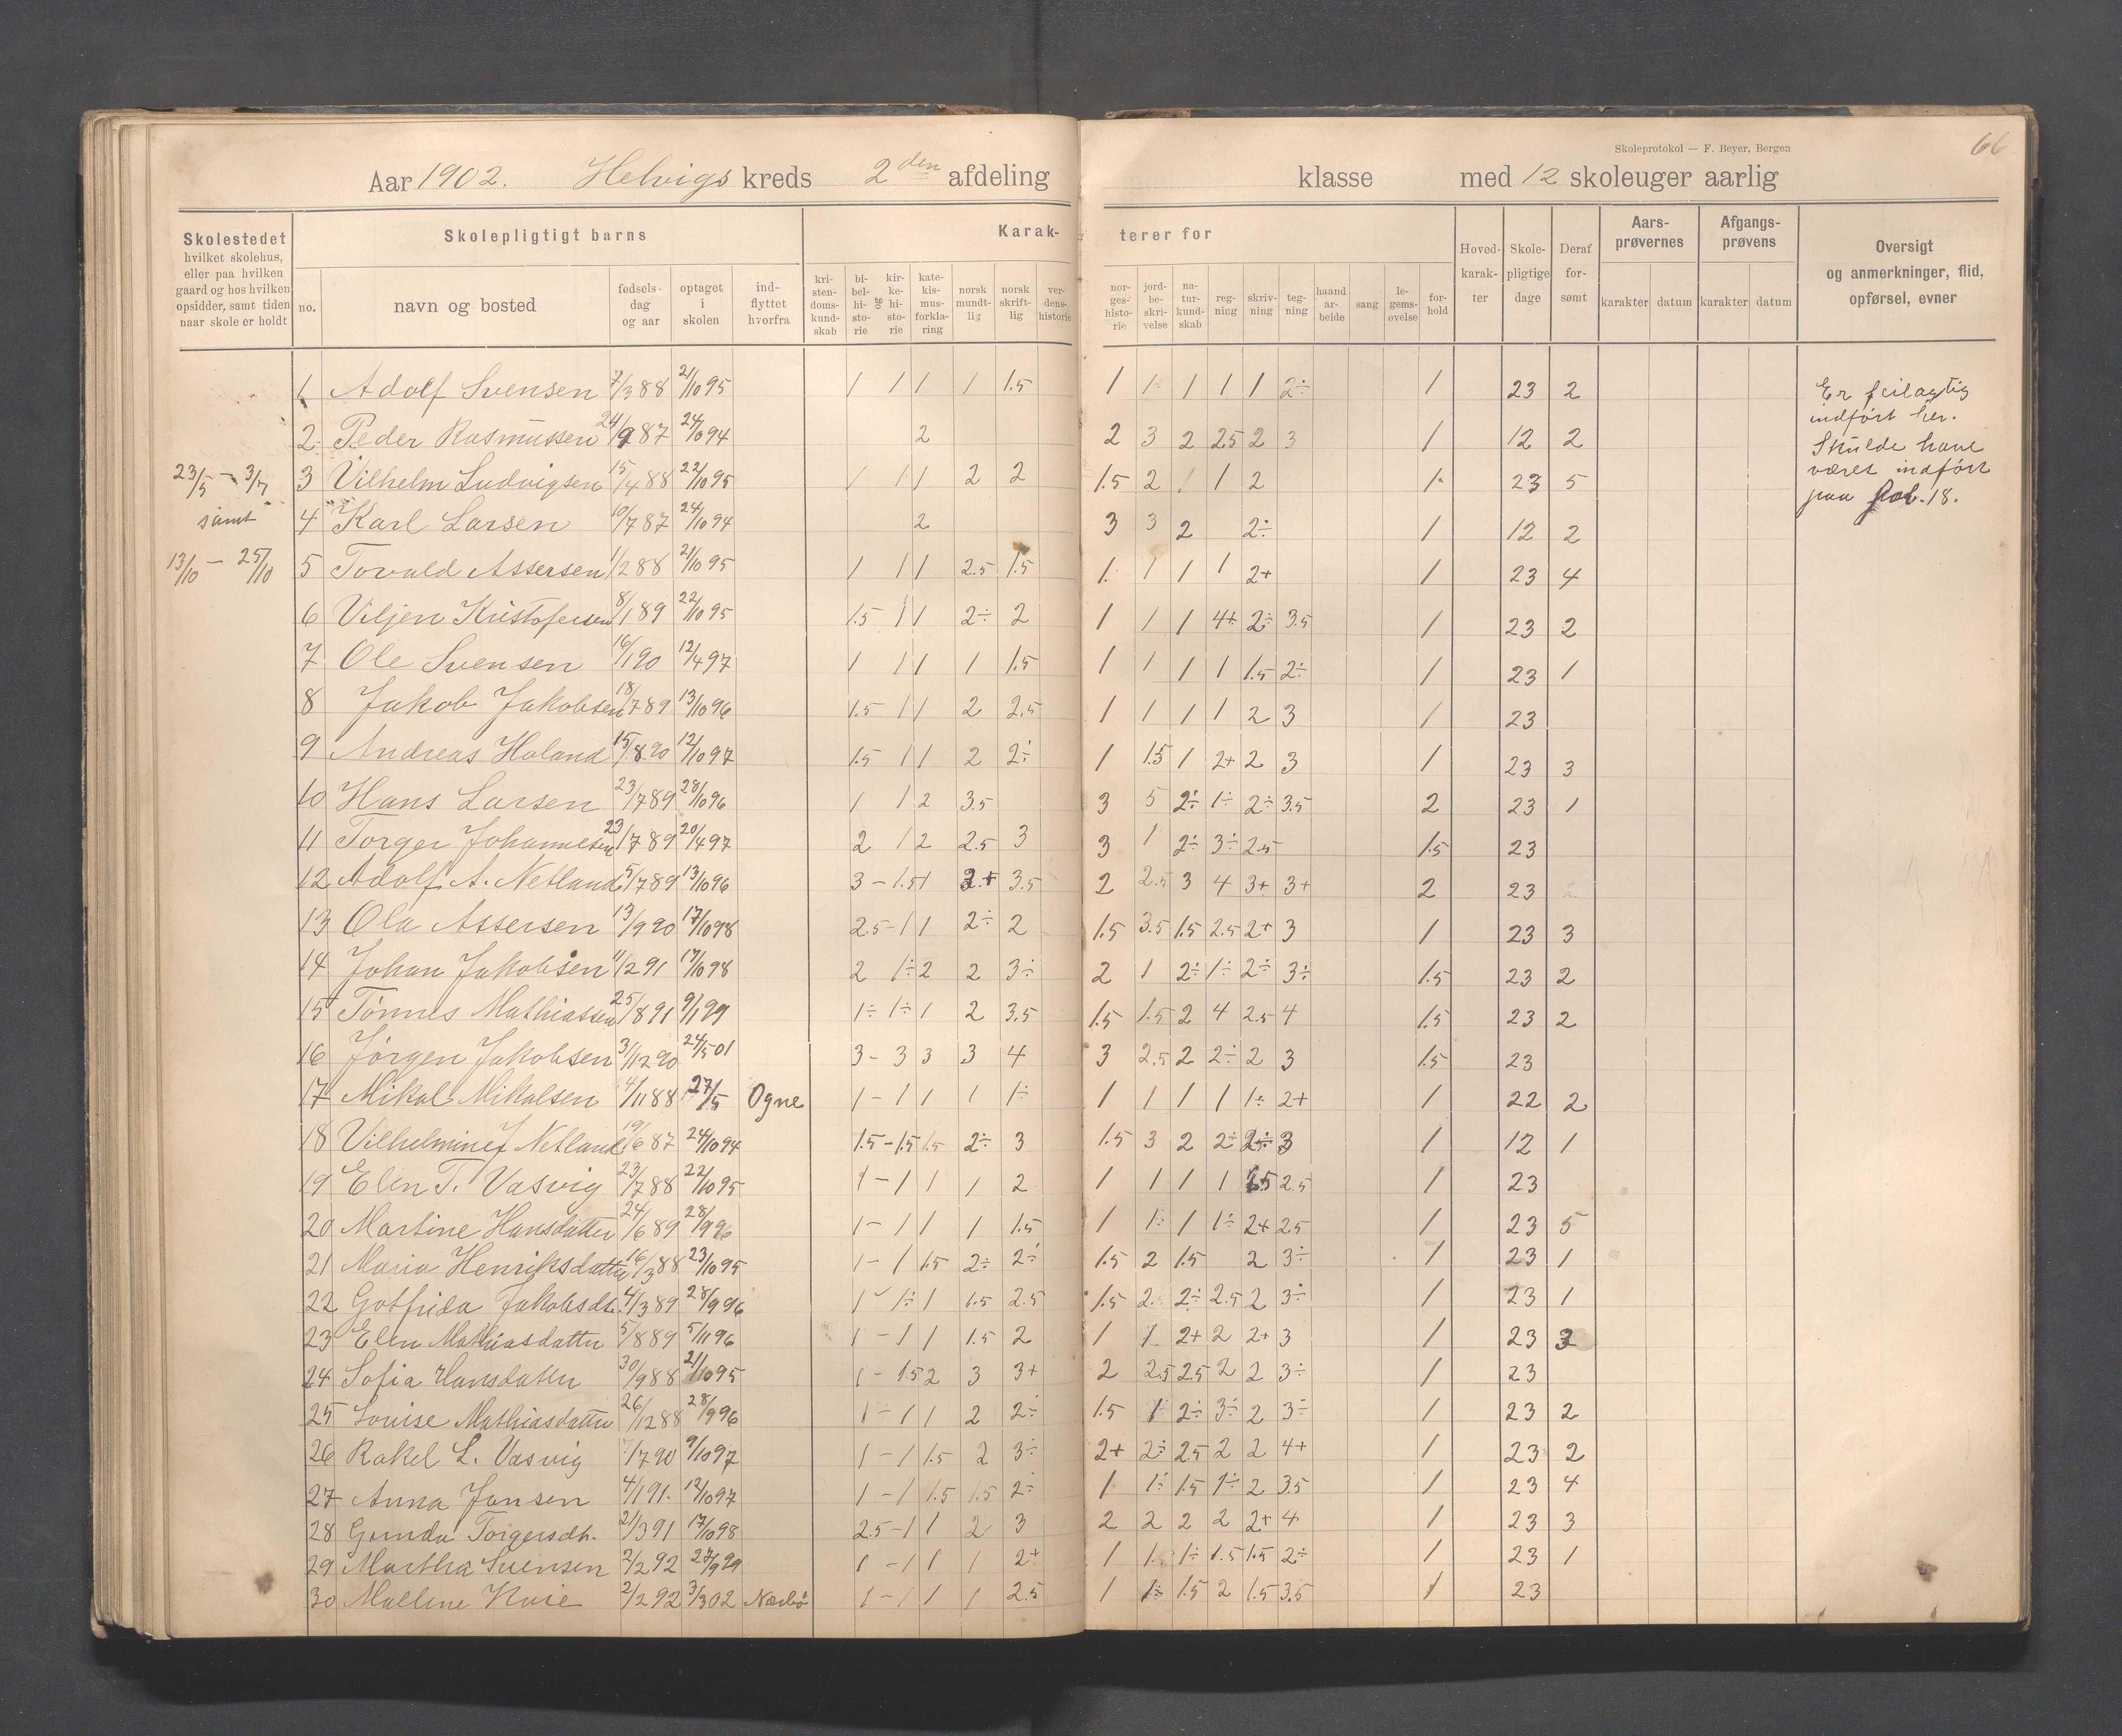 Skoleprotokol — F. Beyer, Bergen
66
Aar 1902. Helvigs kreds 2den afdeling klasse med 12 skoleuger aarlig
Skolestedet
hvilket skolehus,
eller paa hvilken
gaard og hos hvilken
opsidder, samt tiden
naar skole er holdt
Skolepligtigt barns
no.
navn og bosted
fødsels-
dag
og aar
optaget
i
skolen
ind-
flyttet
hvorfra
Karak-
terer for
kri-
sten-
doms-
kund-
skab
bi-
bel-
hi-
sto-
rie
og
kir-
ke-
hi-
sto-
rie
kate-
kis-
mus-
forkla-
ring
norsk
mundt-
lig
norsk
skrift-
lig
ver-
dens-
historie
nor-
ges-
histo-
rie
jord-
be-
skri-
velse
na-
tur-
kund-
skab
reg-
ning
skriv-
ning
teg-
ning
haand
ar-
beide
sang
le-
gems-
øvelse
for-
hold
Hoved-
karak-
ter
Skole-
pligtige
dage
Deraf
for-
sømt
Aars-
prøvernes
karakter datum
Afgangs-
prøvens
karakter datum
Oversigt
og anmerkninger, flid,
opførsel, evner
23/5 - 3/7
samt
13/10 - 25/10
1 Adolf Svensen 7/3 88 21/10 95 1 1 1 1 1.5 1 1 1 1 1 2÷ 1 23 2
2 Peder Rasmussen 24/9 87 24/10 94 2 2 3 2 2.5 2 3 1 12 2
3 Vilhelm Ludvigsen 15/4 88 22/10 95 1 1 1 2 2 1.5 2 1 1 2 1 23 5
4 Karl Larsen 10/7 87 24/10 94 2 3 3 2 2÷ 1 12 2
5 Tovald Assersen 1/2 88 21/10 95 1 1 1 2.5 1.5 1 1 1 1 2+ 1 23 4
6 Viljen Kristofersen 8/1 89 22/10 95 1.5 1 1 2÷ 2 1 1 1 4+ 2÷ 3.5 1 23 2
7 Ole Svensen 16/1 90 12/4 97 1 1 1 1 1.5 1 1 1 1 1.5 2÷ 1 23 1
8 Jakob Jakobsen 18/7 89 13/10 96 1.5 1 1 2 2.5 1 1 1 1 2 3 1 23
9 Andreas Holand 15/8 90 12/10 97 1.5 1 1 2 2÷ 1 1.5 1 2+ 2 3 1 23 3
10 Hans Larsen 23/7 89 28/10 96 1 1 2 3.5 3 5 2÷ 1÷ 2÷ 3.5 2 23 1
11 Torger Johannesen 23/7 89 20/4 97 2 1 2 2.5 3 3 1 2÷ 3÷ 2.5 1.5 23
12 Adolf A. Netland 5/7 89 13/10 96 3 - 1.5 1 2.+ 3.5 2 2.5 3 4 3+ 3+ 2 23
13 Ola Assersen 13/9 90 17/10 98 2.5 - 1 1 2÷ 2 1.5 3.5 1.5 2.5 2+ 3 1 23 3
14 Johan Jakobsen 11/2 91 17/10 98 2 1÷ 2 2 3÷ 2 1 2÷ 1÷ 2÷ 3÷ 1.5 23 2
15 Tønnes Mathiassen 25/8 91 9/1 99 1÷ 1÷ 1 2 3.5 1.5 1.5 2 4 2.5 4 1.5 23 2
16 Jørgen Jakobsen 31/12 90 24/5 01 3 - 3 3 3 4 3 2.5 2 2÷ 2 3 1.5 23
17 Mikal Mikalsen 4/11 88 27/5 Ogne 1 - 1 1 1 1÷ 1 1 1 1 1÷ 2+ 1 22 2
18 Vilhelmine J Netland 19/6 87 24/10 94 1.5 - 1.5 1.5 2÷ 3 1.5 3 2 2÷ 2÷ 3 1 12 1
19 Elen T. Vasvig 23/7 88 22/10 95 1 - 1 1 1 2 1 1 1 1 1.5 2.5 1 23
20 Martine Hansdatter 24/6 89 28/9 96 1 - 1 1 1 1.5 1 1÷ 1 1÷ 2+ 2.5 1 23 5
21 Maria Henriksdatter 16/3 88 23/10 95 1 - 1 1.5 2÷ 2÷ 1.5 2 1.5 2 3÷ 1 23 1
22 Gotfrida Jakobsdt. 4/3 89 28/9 96 1 - 1÷ 1 1.5 2.5 1.5 2.5 2÷ 2.5 2 3÷ 1 23 1
23 Elen Mathiasdatter 5/8 89 5/11 96 1 - 1 1 1.5 2 1 1 2+ 2 2+ 3 1 23 3
24 Sofia Hansdatter 30/9 88 21/10 95 1 - 1.5 2 3 3+ 2 2.5 2.5 2 2 3÷ 1 23
25 Lovise Mathiasdatter 26/12 88 28/9 96 1 - 1 1 2 2÷ 1.5 1 2÷ 3÷ 2 3÷ 1 23 2
26 Rakel L. Vasvig 7/7 90 9/10 97 1 - 1 1.5 2 3÷ 2+ 2÷ 2.5 2 2 4+ 1 23 2
27 Anna Jansen 4/1 91. 12/10 97 1 - 1 1.5 1.5 2÷ 1 1÷ 1.5 1÷ 2 3.5 1 23 4
28 Gunda Torgersdt. 21/3 91 17/10 98 2.5 - 1 1 2 3 2 2 2 2 2+ 4 1 23 3
29 Martha Svensen 2/2 92 27/9 99 1 - 1 1 1 2+ 1 1. 1÷ 1.5 1.5 2÷ 1 23 1
30 Mallene Kvie 2/2 92 3/3 02 Nærbø 1 - 1 1 1 2.5 1 1÷ 1.5 2 1.5 3.5 1 23
Er feilagtig
indført her.
Skulde have
været indført
paa fol. 18.